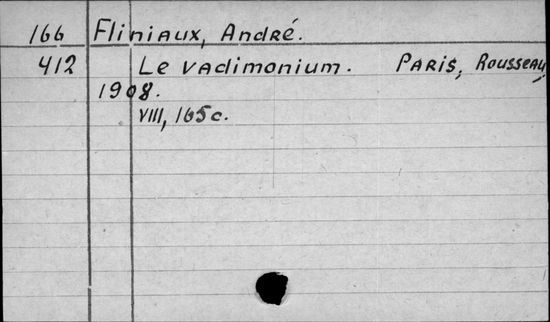 166 Fliniaux, André.
412 Le vadimonium. Paris, Rousseau,
1908.
VIII, 165 c.